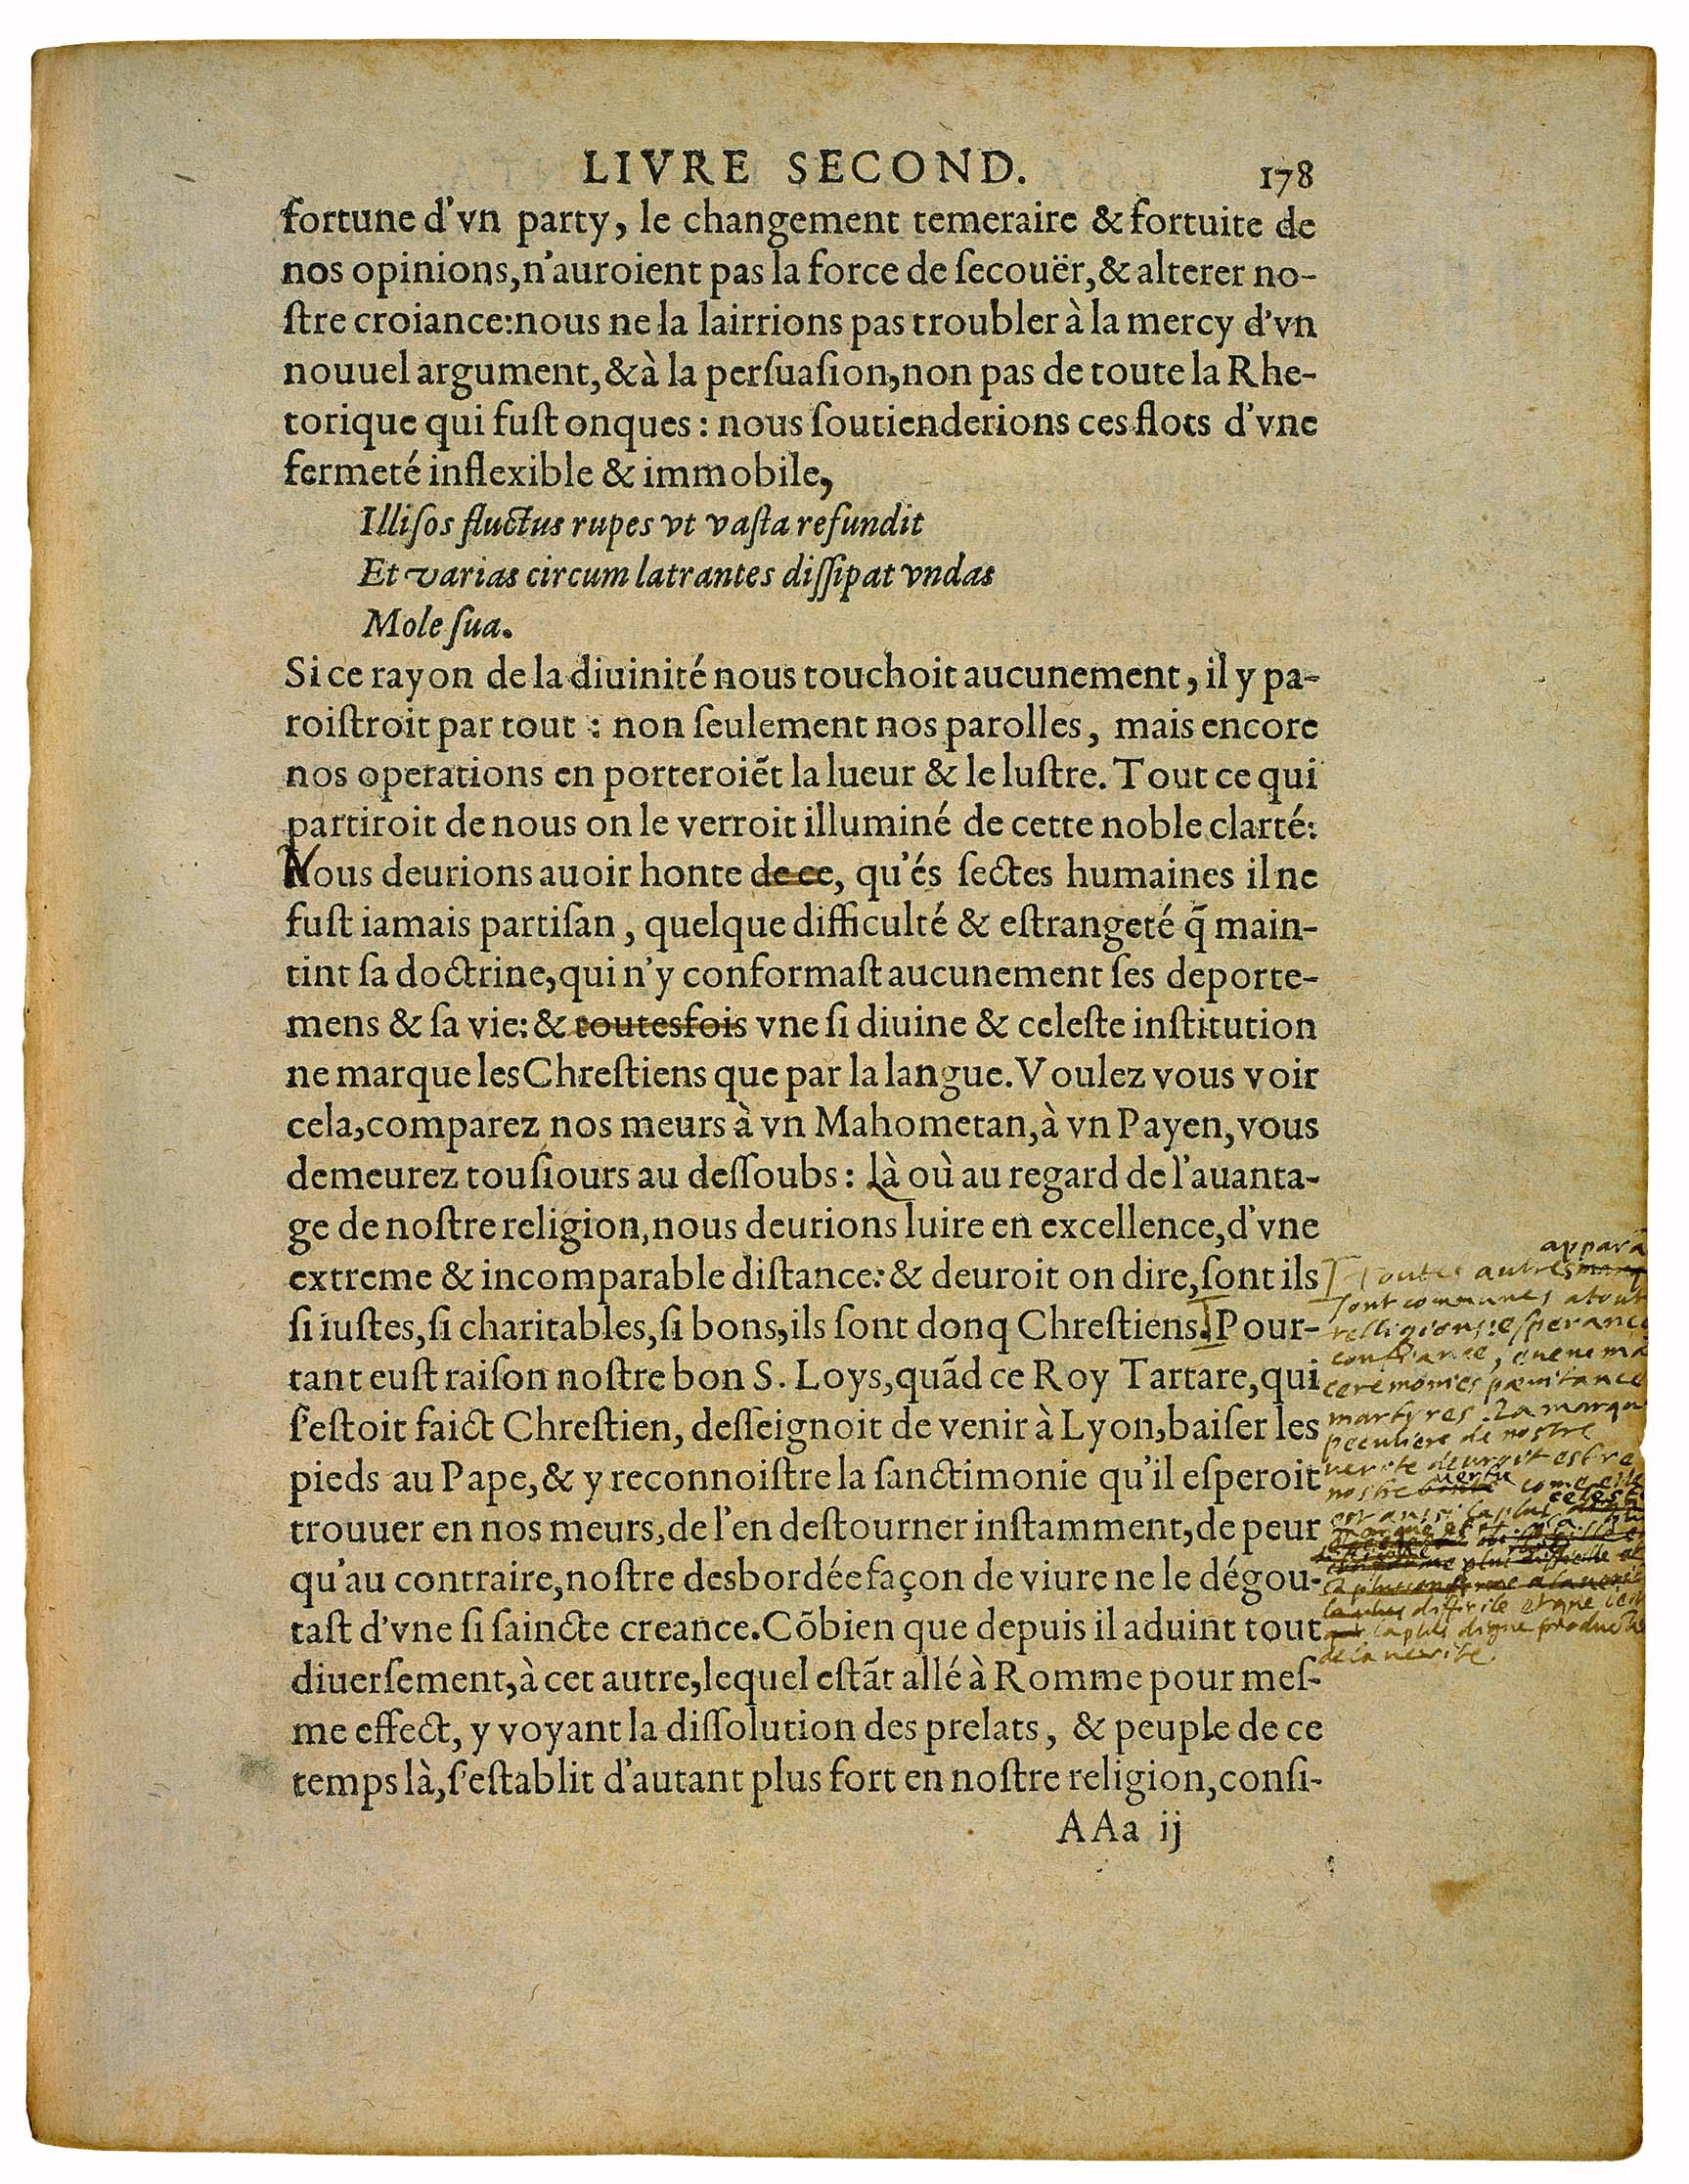 LIVRE SECOND. 178
fortune d'vn party, le changement temeraire & fortuite de
nos opinions, n'auroient pas la force de ſecouër, & alterer no-
ſtre croiance: nous ne la lairrions pas troubler à la mercy d'vn
nouuel argument, & à la perſuaſion, non pas de toute la Rhe-
torique qui fuſt onques: nous ſoutienderions ces flots d'vne
fermeté inflexible & immobile,
Illiſos fluctus rupes vt vaſta refundit
Et varias circum latrantes diſſipat vndas
Mole ſua.
Si ce rayon de la diuinité nous touchoit aucunement, il y pa-
roiſtroit par tout : non ſeulement nos parolles, mais encore
nos operations en porteroiẽt la lueur & le luſtre. Tout ce qui
partiroit de nous on le verroit illuminé de cette noble clarté:
Nous deurions auoir honte de ce, qu'és ſectes humaines il ne
fuſt iamais partiſan, quelque difficulté & eſtrangeté q̃ main-
tint ſa doctrine, qui n'y conformaſt aucunement ſes deporte-
mens & ſa vie: & toutesfois vne ſi diuine & celeſte inſtitution
ne marque les Chreſtiens que par la langue. Voulez vous voir
cela, comparez nos meurs à vn Mahometan, à vn Payen, vous
demeurez touſiours au deſſoubs: Là où au regard de l'auanta-
ge de noſtre religion, nous deurions luire en excellence, d'vne
extreme & incomparable diſtance: & deuroit on dire, ſont ils
ſi iuſtes, ſi charitables, ſi bons, ils ſont donq Chreſtiens. Pour-
tant euſt raiſon noſtre bon S. Loys, quãd ce Roy Tartare, qui
s'eſtoit faict Chreſtien, deſſeignoit de venir à Lyon, baiſer les
pieds au Pape, & y reconnoiſtre la ſanctimonie qu'il eſperoit
trouuer en nos meurs, de l'en deſtourner inſtamment, de peur
qu'au contraire, noſtre desbordée façon de viure ne le dégou-
taſt d'vne ſi ſaincte creance. Cõbien que depuis il aduint tout
diuerſement, à cet autre, lequel eſtãt allé à Romme pour meſ-
me effect, y voyant la diſſolution des prelats, & peuple de ce
temps là, s'eſtablit d'autant plus fort en noſtre religion, conſi-
AAa ij
appara
Toutes autres
sont communes a tout
relligions: esperance
confiance, euenema
ceremonies pænitance
martyres. La marqu
peculiere de nostre
uerite deuroit estre
nostre uertu come elle
est aussi la plus celest
marque et
difficile et que c'est
la plus digne production
de la uerite